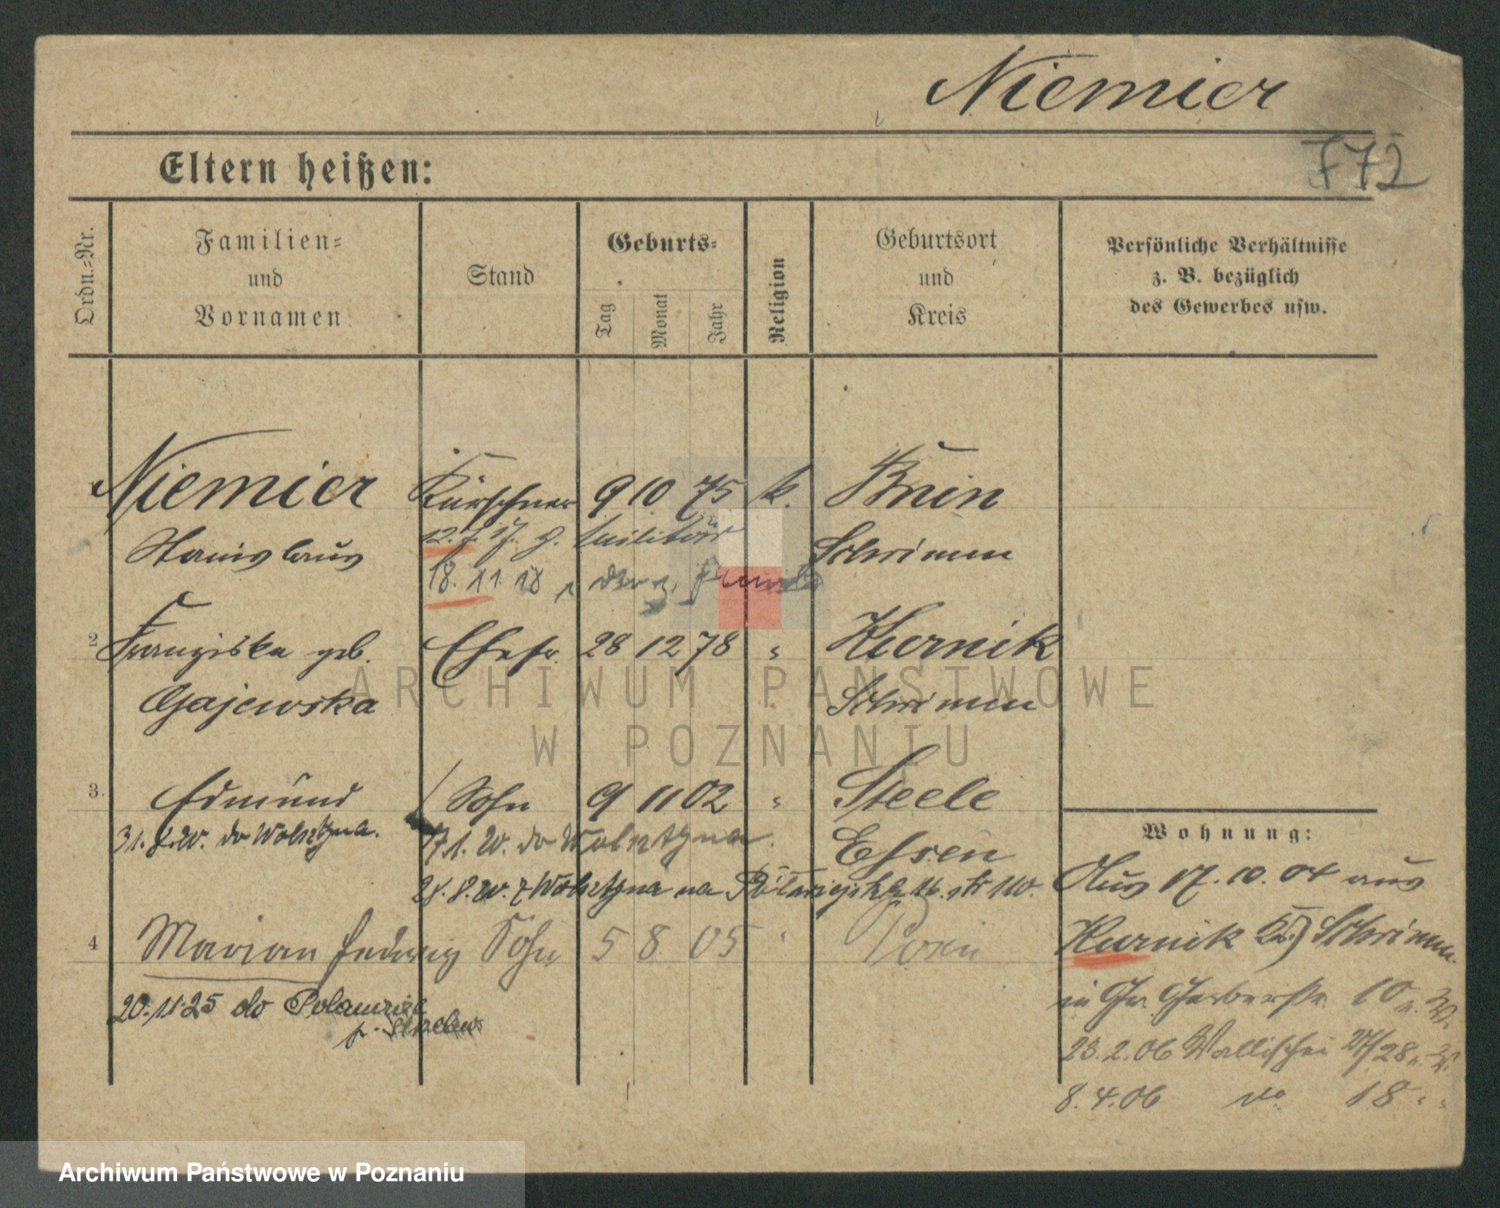 Niemier
772
Eltern heißen:
Ordn.-Nr.
Familien-
und
Vornamen
Stand
Geburts-
Tag
Monat
Jahr
Religion
Geburtsort
und
Kreis
Persönliche Verhältnisse
z. B. bezüglich
des Gewerbes usw.
Niemier Kürschner 9 10 75 k. Bnin
Stanislaus 12.7.17. z. Militär Schrimm
18. 11 18
2 Franziska geb. Ehefr. 28 12 78 " Kurnik
Gajewska Schrimm
3. Edmund Sohn 9 11 02 " Steele
31. do Wolsztyna. 17.1. do Wolsztyna. Essen
28.8. z Wolsztyna na
4 Marian Sohn 5 8 05 " Posen
20.11.25 do
Wohnung:
Aus 17.10.04 aus
Kurnik Kr. Schrimm
in Gr. Gerberstr. 10
23.2.06 Wallischei 27/28
8.4.06 do 18 " "
ARCHIWUM PAŃSTWOWE
W POZNANIU
Archiwum Państwowe w Poznaniu